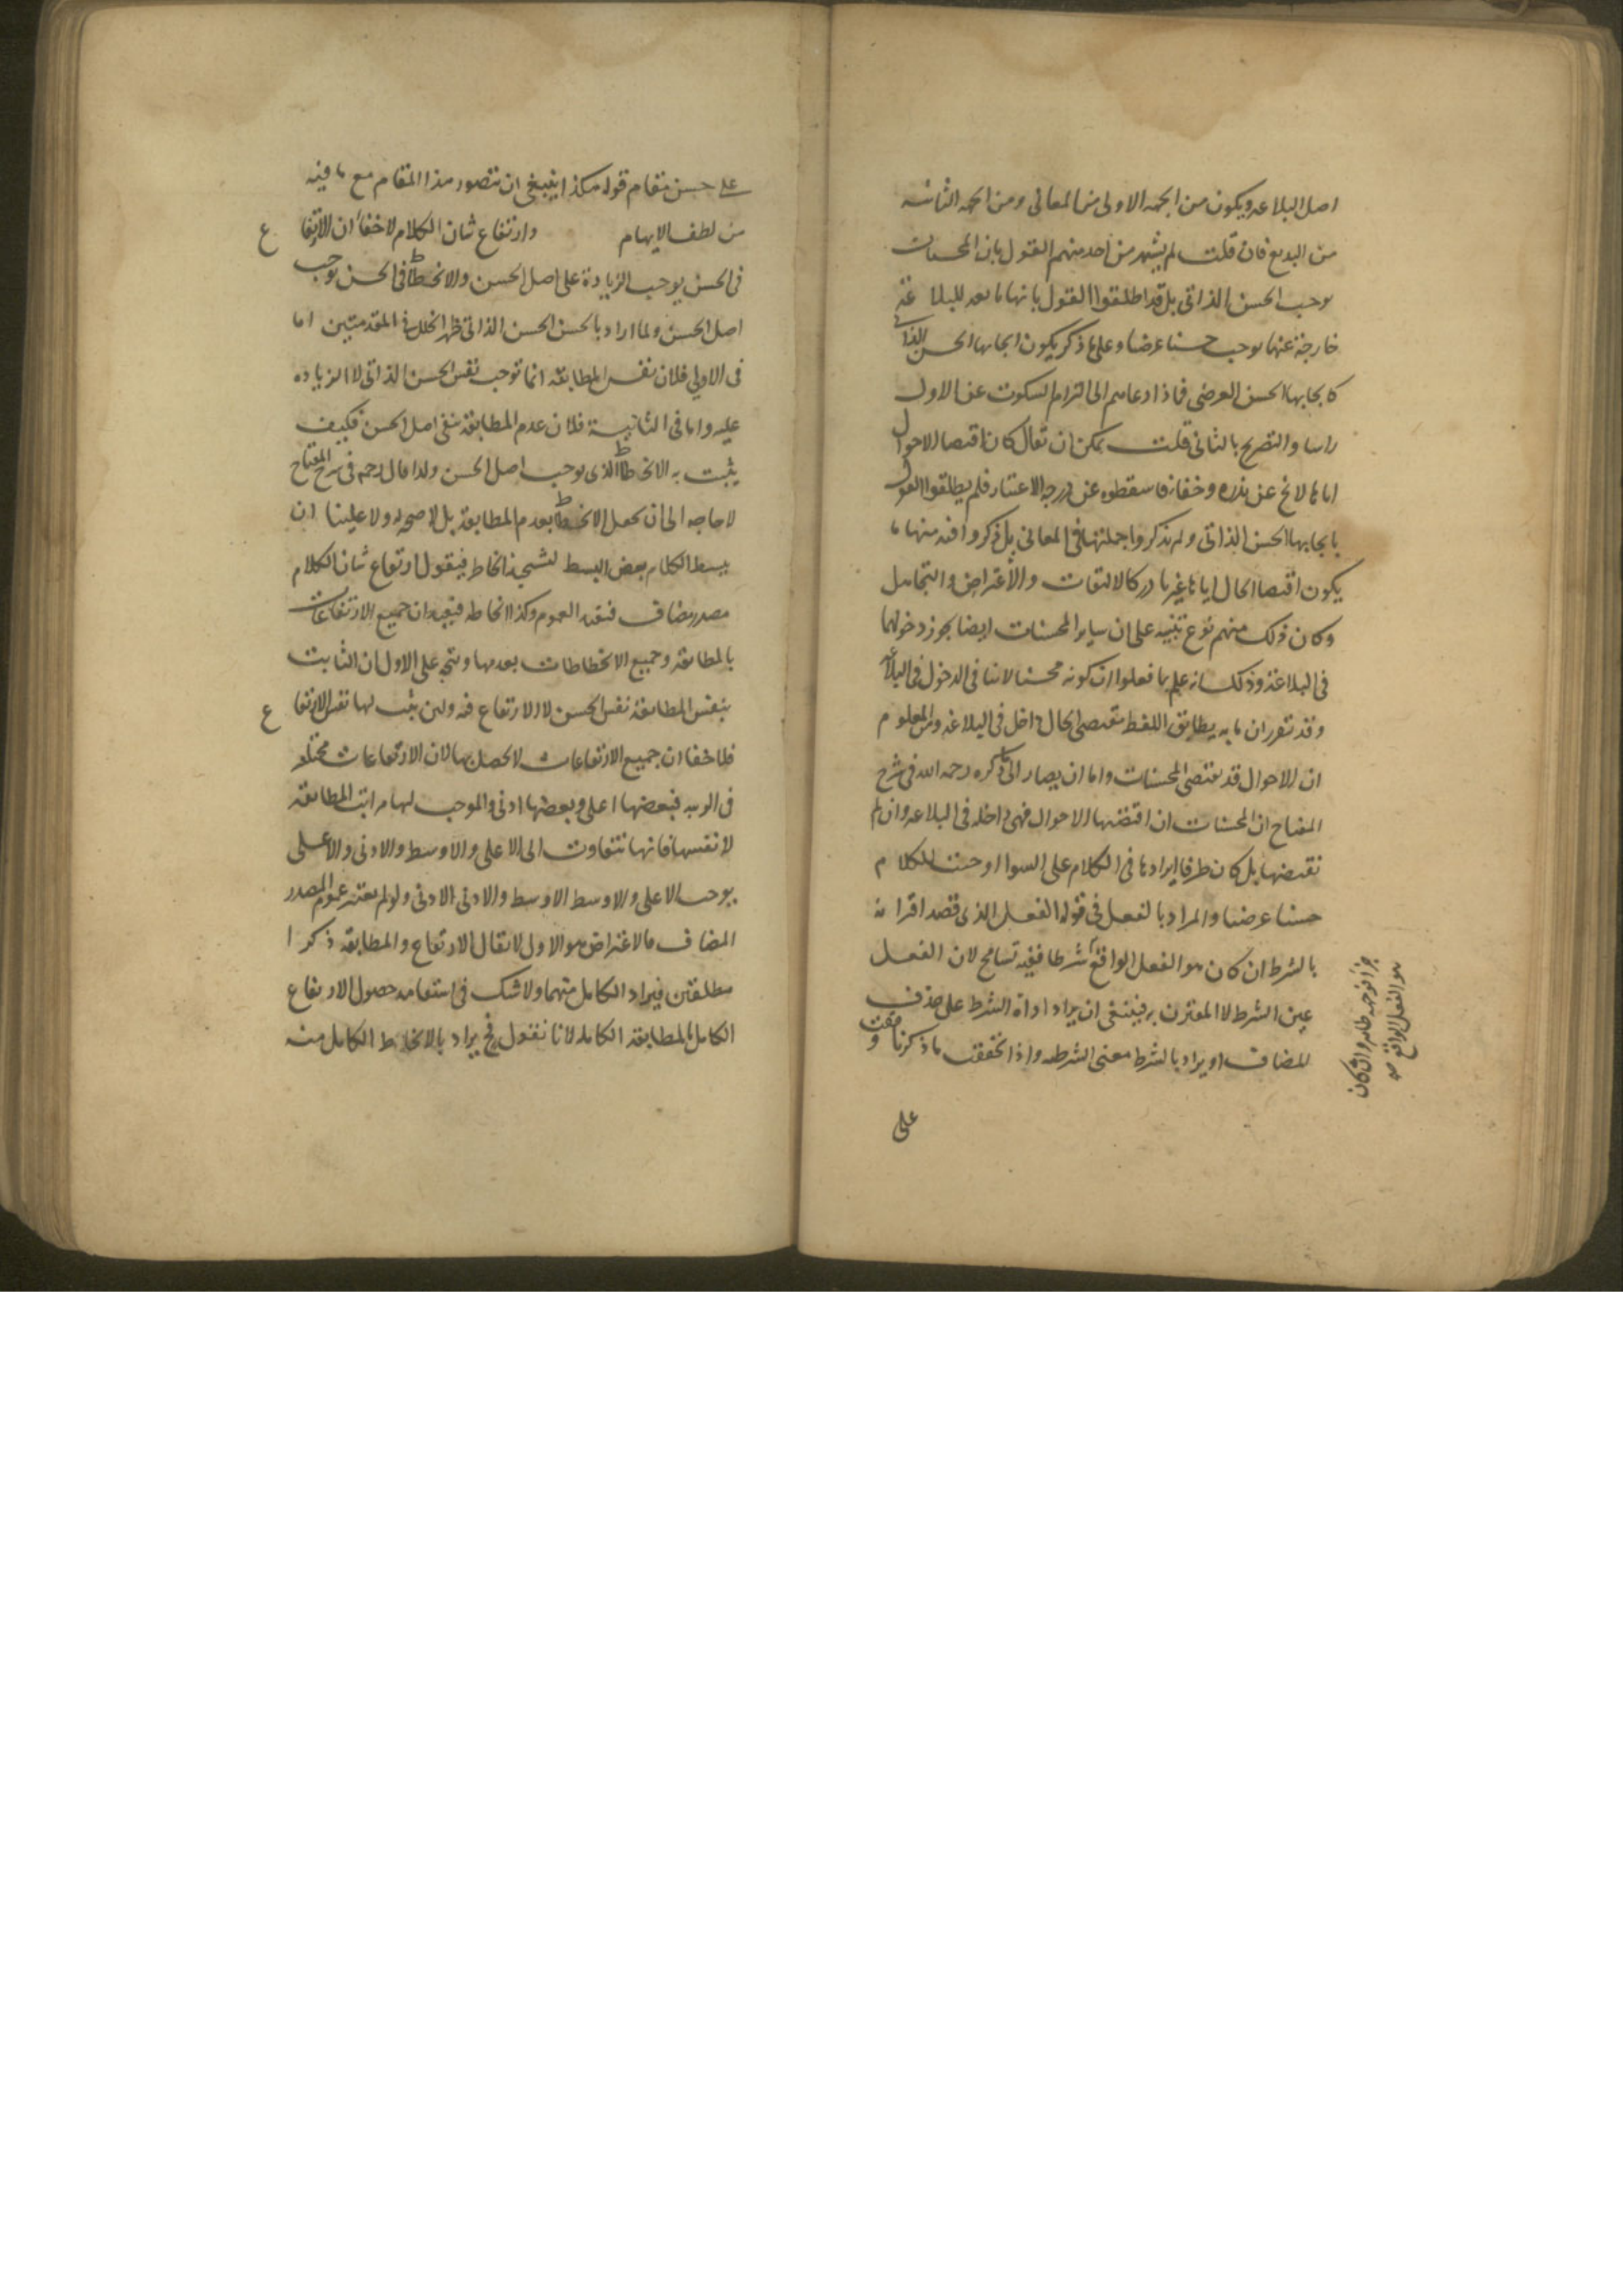 اصل البلاغه ويكون من الجهه الاولى من المعانى ومن الجهه الثانيه
من البديع فان قلت لم يشهر من احد منهم القول بان المحسنات
يوجب الحسن الذاتى بل قد اطلقوا القول بانها تابعه للبلاغة
خارجة عنها يوجب حسنا عرضيا وعلى ما ذكر يكون ايجابها الحسن الذاتى
كايجابها الحسن العرضى فماذا دعاهم الى التزام السكوت عن الاول
راسا والتصريح بالثانى قلت يمكن ان يقال كان اقتضا الاحوال
اياها لا يخ عن ندره وخفا فاسقطوه عن درجه الاعتبار فلم يطلقوا القول
بايجابها الحسن الذاتى ولم يذكروا جملتها فى المعانى بل ذكروا فيه منها ما
يكون اقتضا الحال اياها غير نادر كالالتفات والاعتراض والتجاهل
وكان ذلك منهم نوع تنبيه على ان ساير المحسنات ايضا يجوز دخولها
فى البلاغة وذلك انه علم بما فعلوا ان كونه محسنا لا ينافى الدخول فى البلاغه
وقد تقرر ان ما به يطابق اللفظ مقتضى الحال داخل فى البلاغه ومن المعلوم
ان الاحوال قد يقتضى المحسنات واما ان يصار الى ما ذكره رحمه الله فى شرح
المفتاح ان المحسنات ان اقتضتها الاحوال فهى داخله فى البلاغه وان لم
تقتضها بل كان طرفا ايرادها فى الكلام على السوا اوجبت للكلام
حسنا عرضيا والمراد بالفعل فى قوله الفعل الذى قصد اقترانه
بالشرط ان كان هو الفعل الواقع شرطا ففيه تسامح لان الفعل
عين الشرط لا المقترن به فينبغى ان يراد اداة الشرط على حذف
المضاف او يراد بالشرط معنى الشرطيه واذا تحققت ما ذكرنا وقفت
جزا فوجهه ظاهر وان كان
هو الفعل الواقع صح
على
على حسن مقام قوله هكذا ينبغى ان يتصور هذا المقام مع ما فيه
من لطف الايهام وارتفاع شان الكلام لا خفا ان الارتفاع
فى الحسن يوجب الزيادة على اصل الحسن والانحطاط فى الحسن يوجب
اصل الحسن ولما اراد بالحسن الحسن الذاتى ظهر الخلل فى المقدمتين اما
فى الاولى فلان نفس المطابقه انما توجب نفس الحسن الذاتى لا الزياده
عليه واما فى الثانية فلان عدم المطابقة ينفى اصل الحسن فكيف
يثبت به الانحطاط الذى يوجب اصل الحسن ولذا قال رحمه فى شرح المفتاح
لا حاجه الى ان يجعل الانحطاط بعدم المطابقة بل لا صحه له ولا علينا ان
يبسط الكلام بعض البسط لتشحيذ الخاطر فيقول ارتفاع شان الكلام
مصدر مضاف فيفيد العموم وكذا انحاطه فيفيد ان جميع الارتفاعات
بالمطابقه وجميع الانحطاطات بعدمها ويتجه على الاول ان الثابت
بنفس المطابقة نفس الحسن لا الارتفاع فيه ولين يثبت لها نفس الارتفاع
فلا خفا ان جميع الارتفاعات لا يحصل بها لان الارتفاعات مختلفه
فى الرتبه فبعضها اعلى وبعضها ادنى والموجب لها مراتب المطابقه
لا نفسها فانها تتفاوت الى الاعلى والاوسط والادنى والاعلى
يوجب الاعلى والاوسط الاوسط والادنى الادنى ولو لم يعتبر عموم المصدر
المضاف فالاعتراض هو الاول لا يقال الارتفاع والمطابقه ذكرا
مطلقين فيراد الكامل منهما ولا شك فى استقامه حصول الارتفاع
الكامل بالمطابقه الكامله لانا نقول فح يراد بالانحطاط الكامل منه